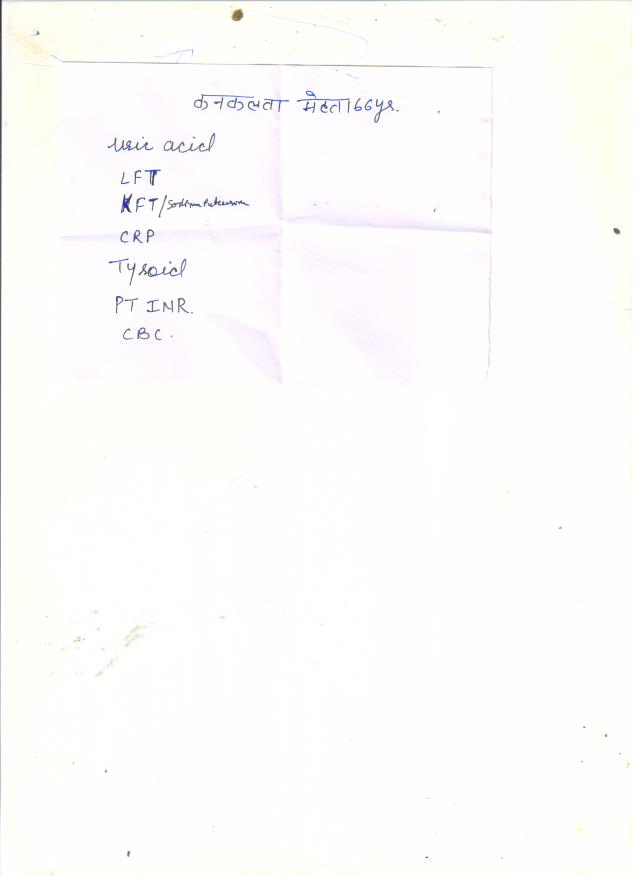 कनकलता मेहता 66yrs.
Uric acid
LFT
KFT/Sodium Potassium
CRP
Tyroid
PT INR.
CBC.